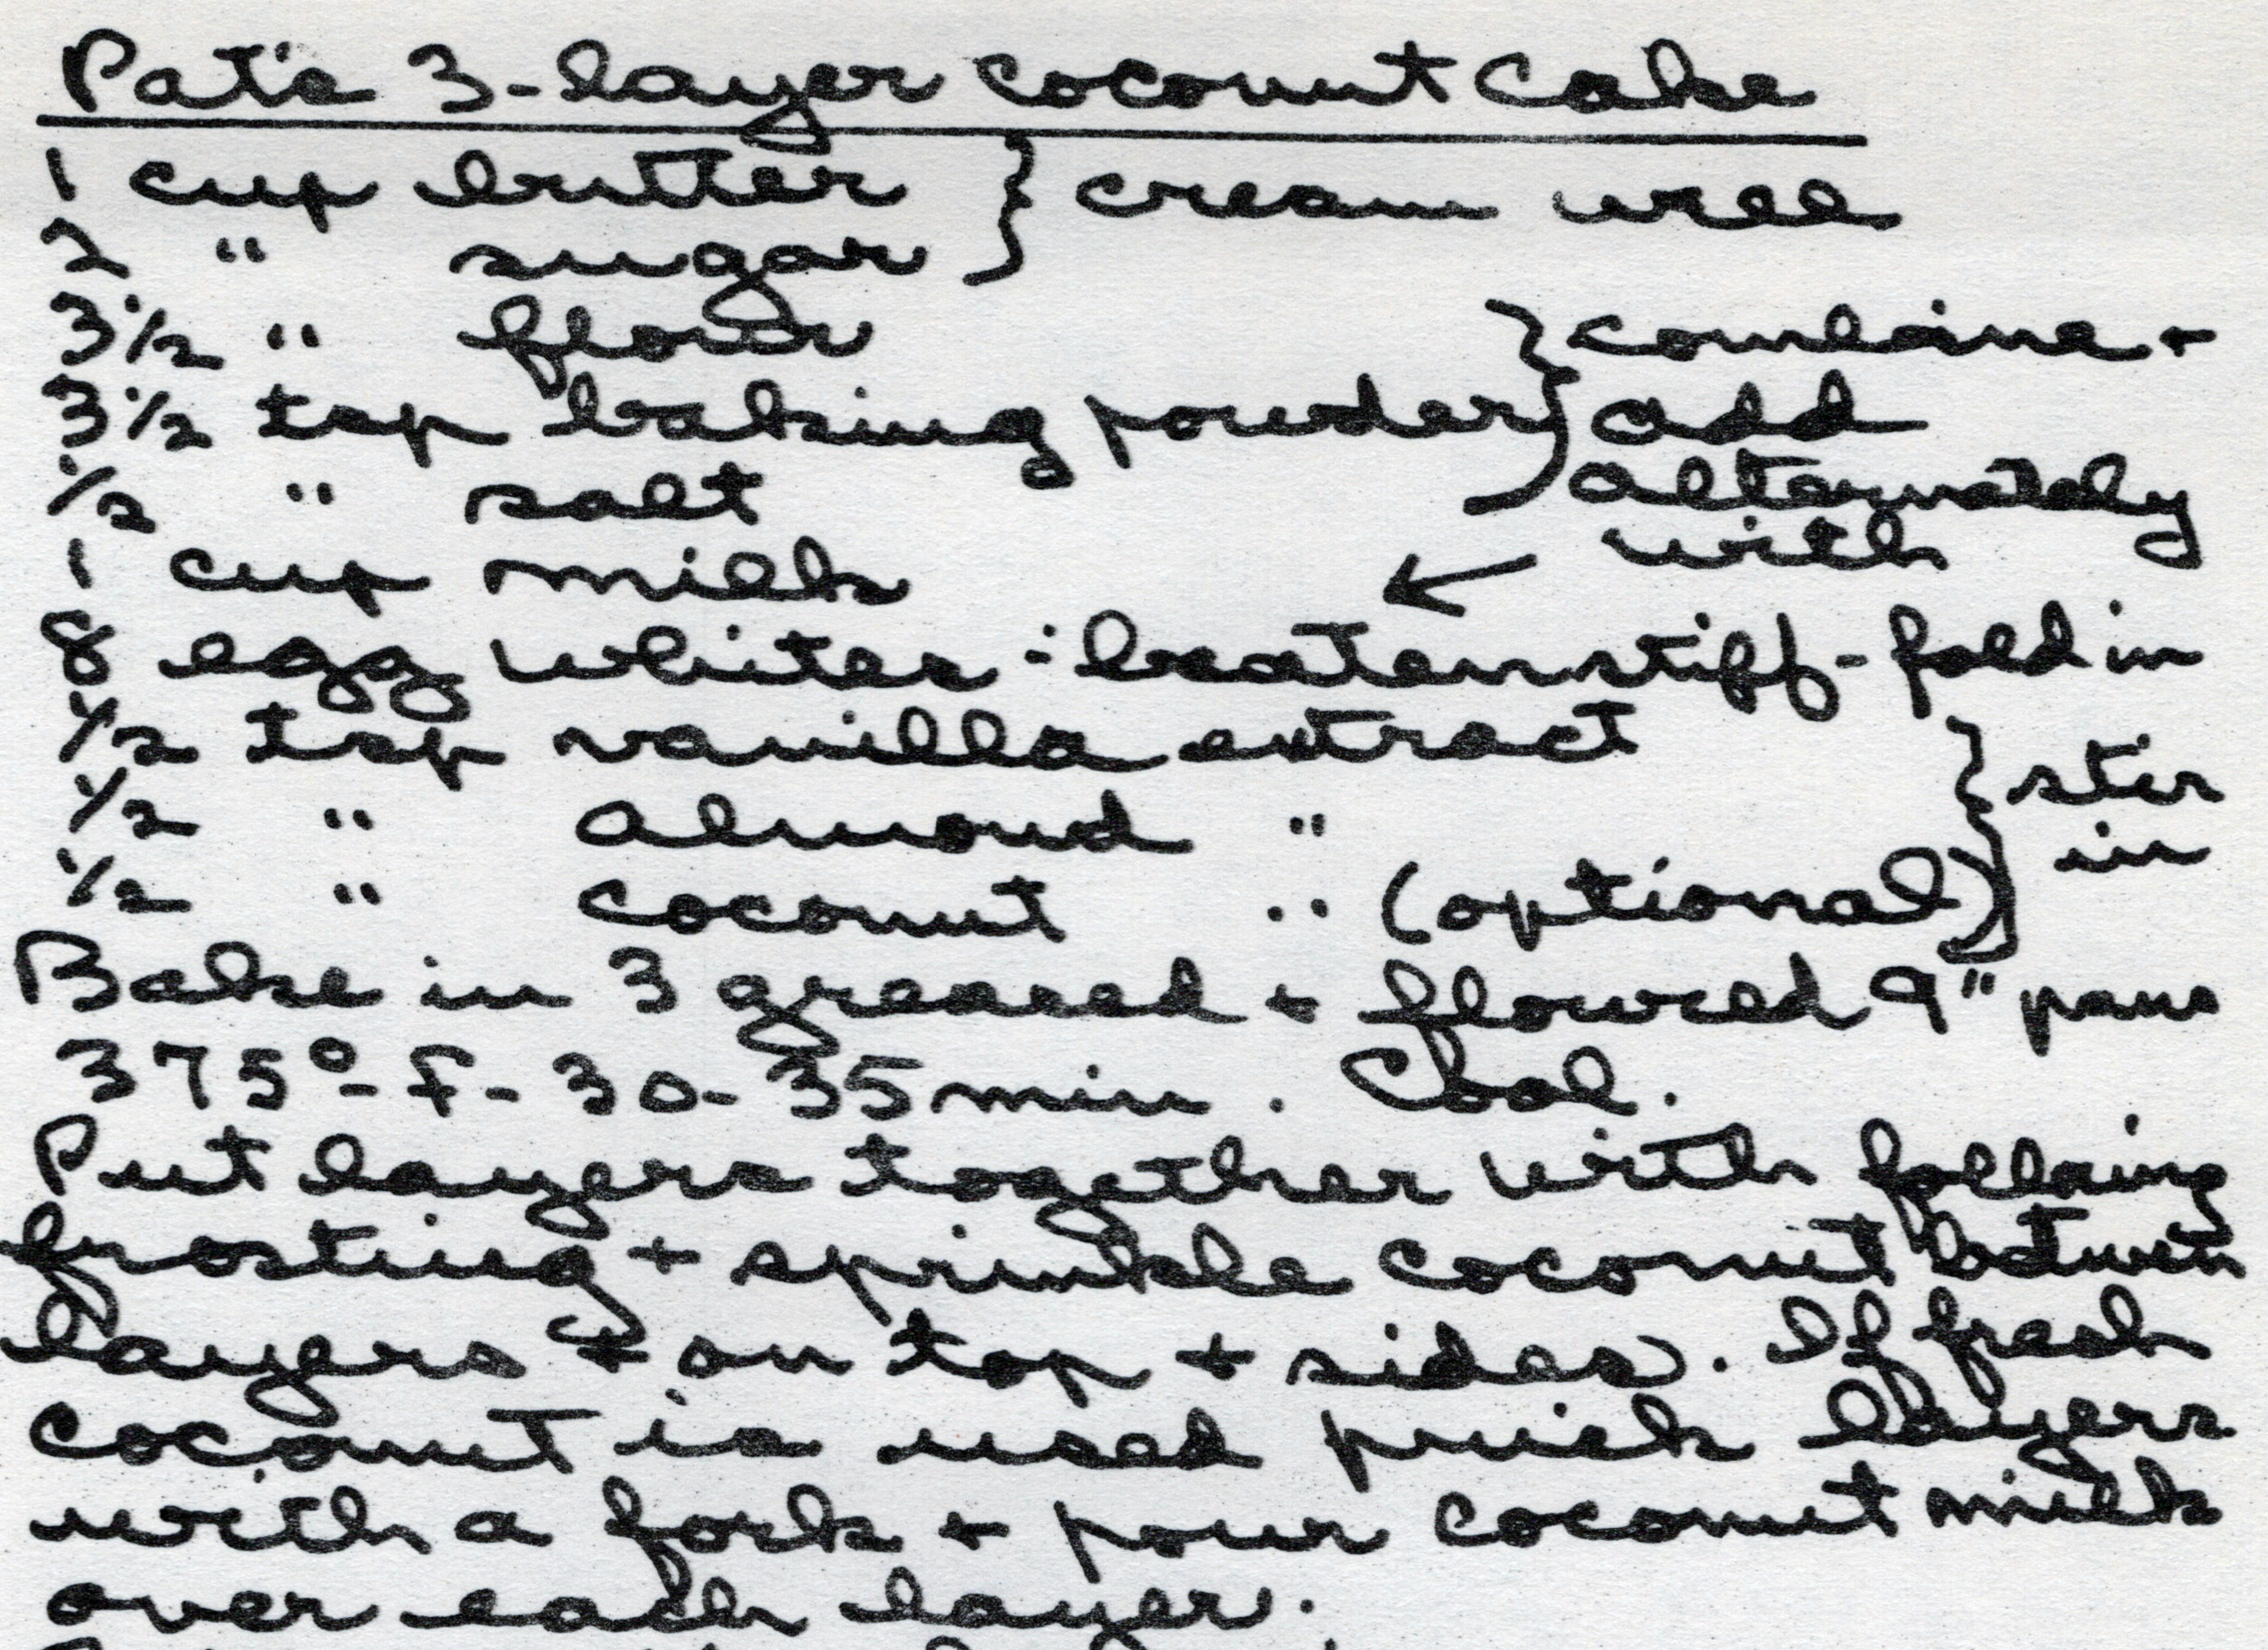 Pat's 3-layer coconut cake
1 cup butter } cream well
2 " sugar
3 1/2 " flour } combine +
3 1/2 tsp baking powder add
1/2 " salt alternately
with
1 cup milk ←
8 egg whites - beaten stiff - fold in
1/2 tsp vanilla extract
1/2 " almond " } stir
1/2 " coconut " (optional) in
Bake in 3 greased + floured 9" pans
375° - F - 30 - 35 min. Cool.
Put layers together with following
frosting + sprinkle coconut between
layers + on top + sides. If fresh
coconut is used prick layers
with a fork + pour coconut milk
over each layer.